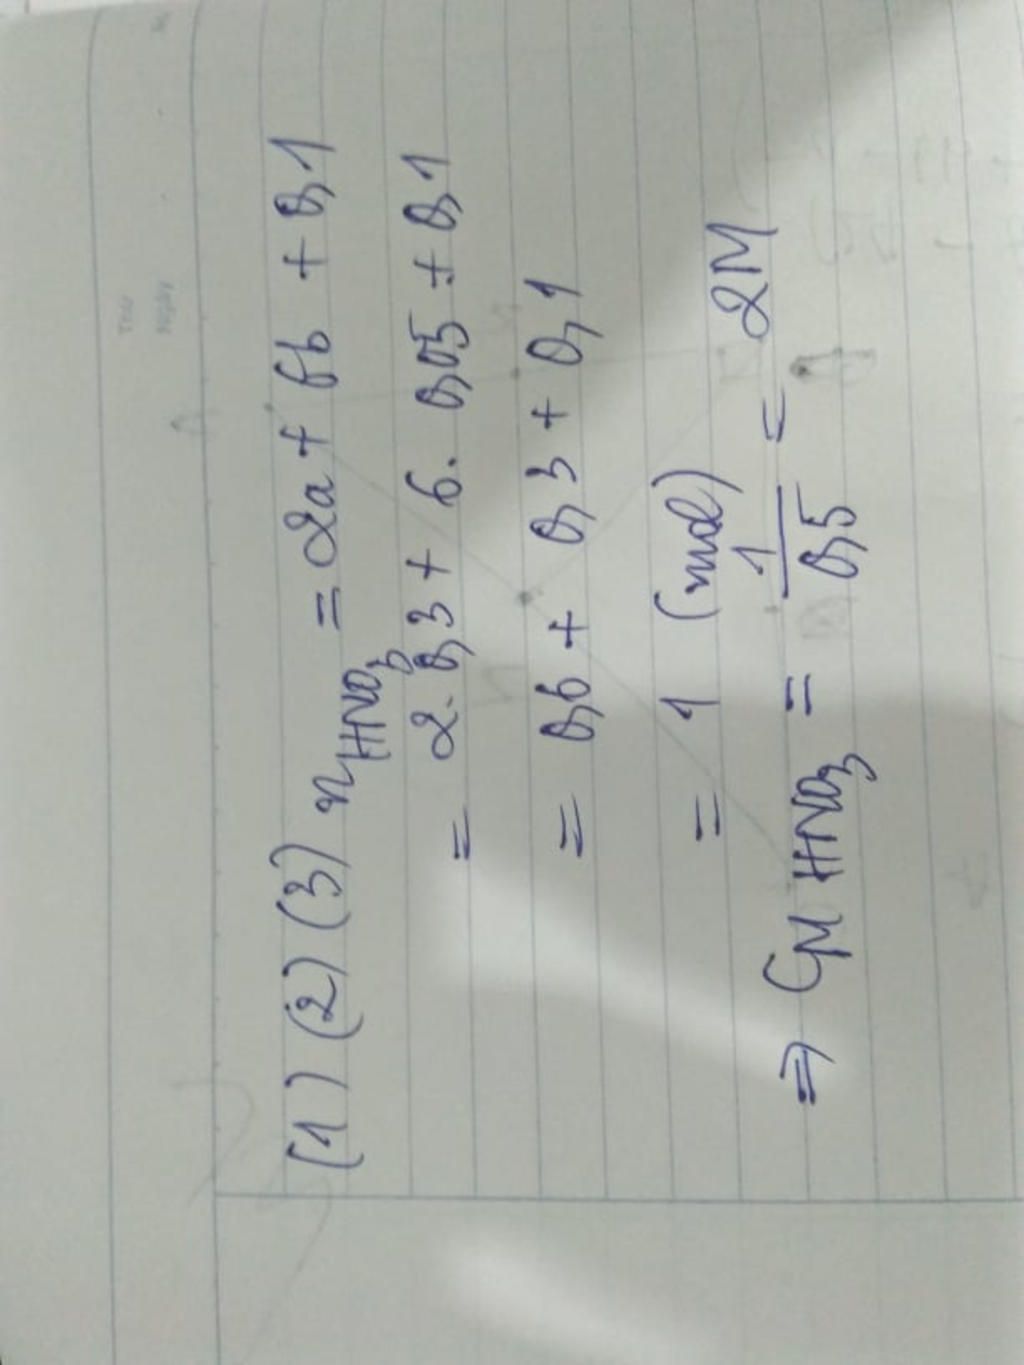 Thứ
Ngày
(1) (2) (3) nHNO3 = 2a + 6b + 0,1
= 2. 0,3 + 6. 0,05 + 0,1
= 0,6 + 0,3 + 0,1
= 1 (mol)
⇒ CM HNO3 = 1/0,5 = 2M